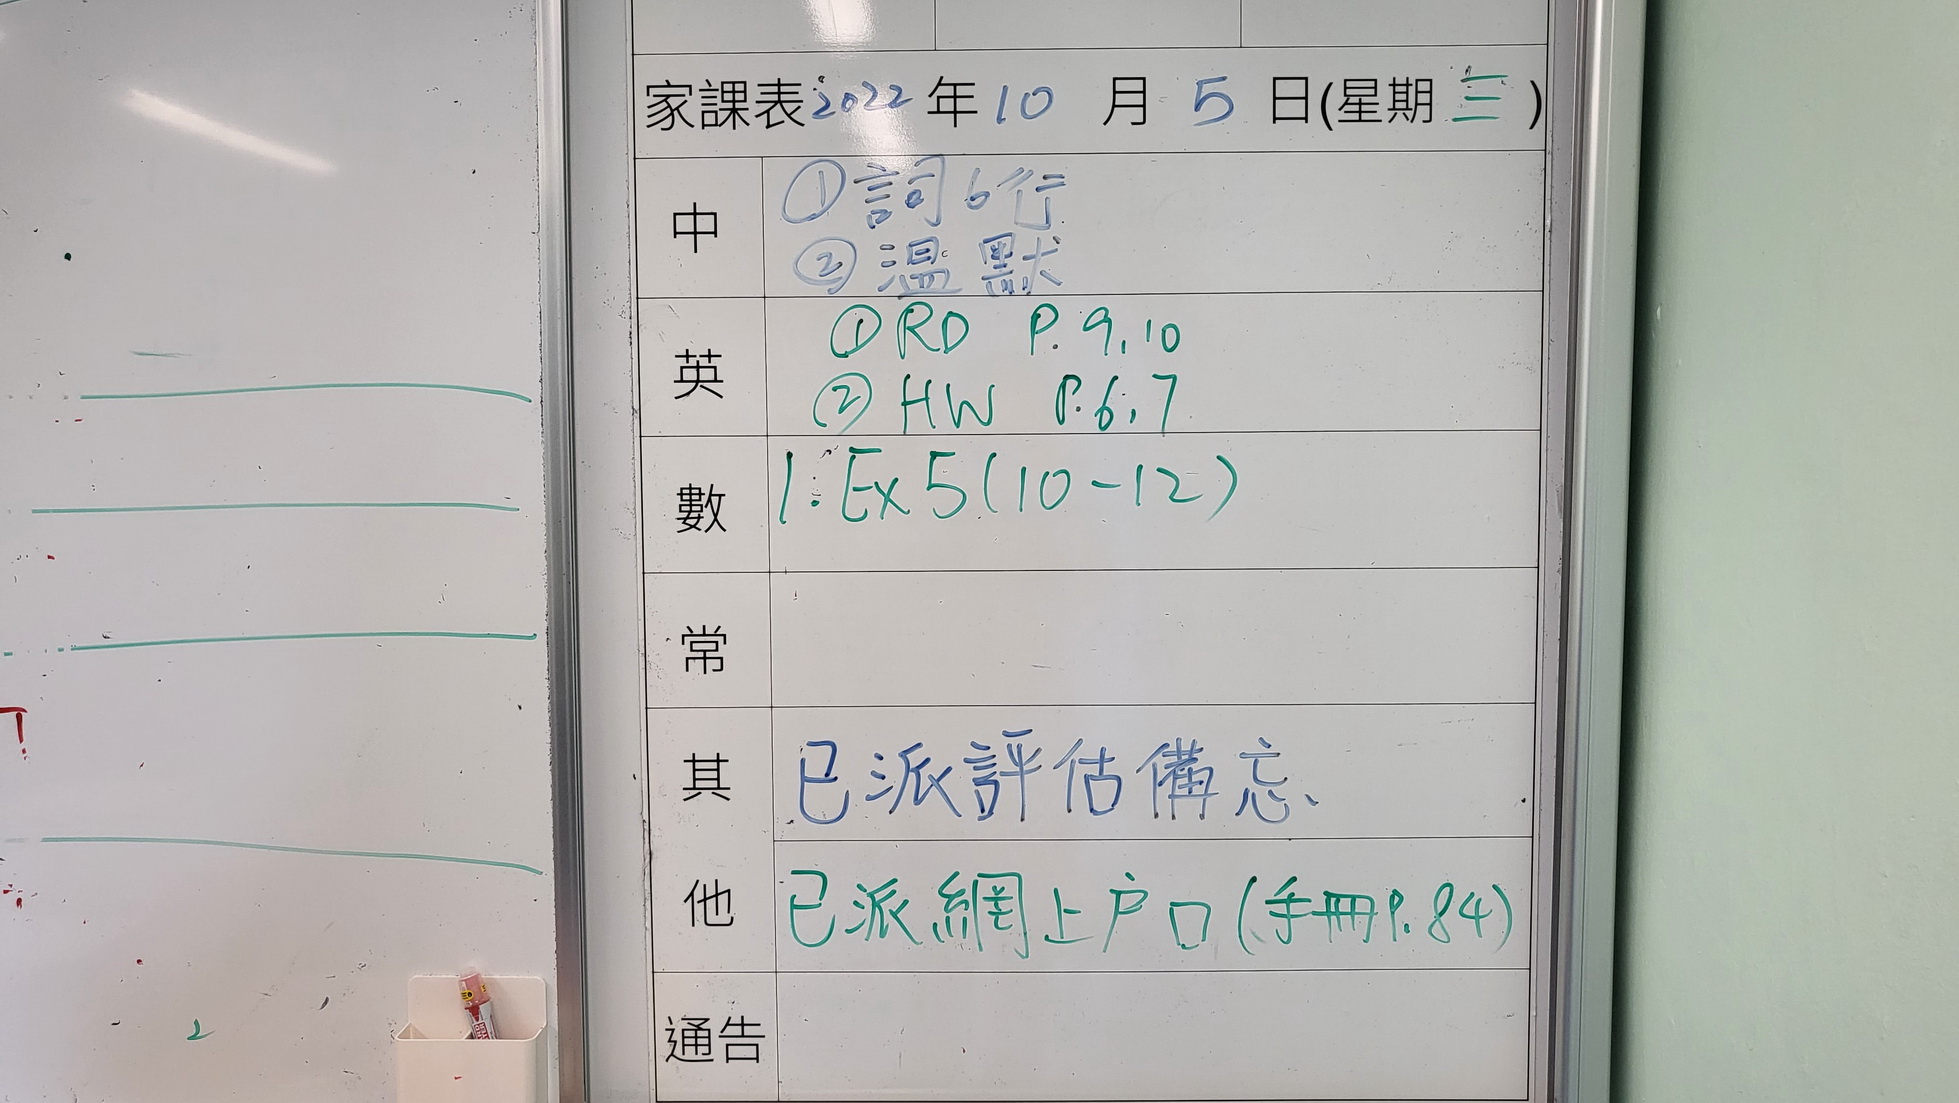 家課表 2022 年 10 月 5 日(星期 三 )
中
① 詞 6 行
② 溫 默
英
① RD P. 9, 10
② HW P. 6, 7
數
1. Ex 5 (10-12)
常
其他
已派評估備忘、
已派網上户口(手冊P.84)
通告